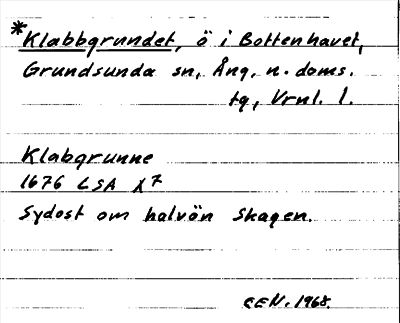 *Klabbgrundet, ö i Bottenhavet,
Grundsunda sn, Ång, n. doms.
tg, Vrnl. l.
Klabgrunne
1676 LSA X7
Sydost om halvön Skagen.
CEN. 1968.